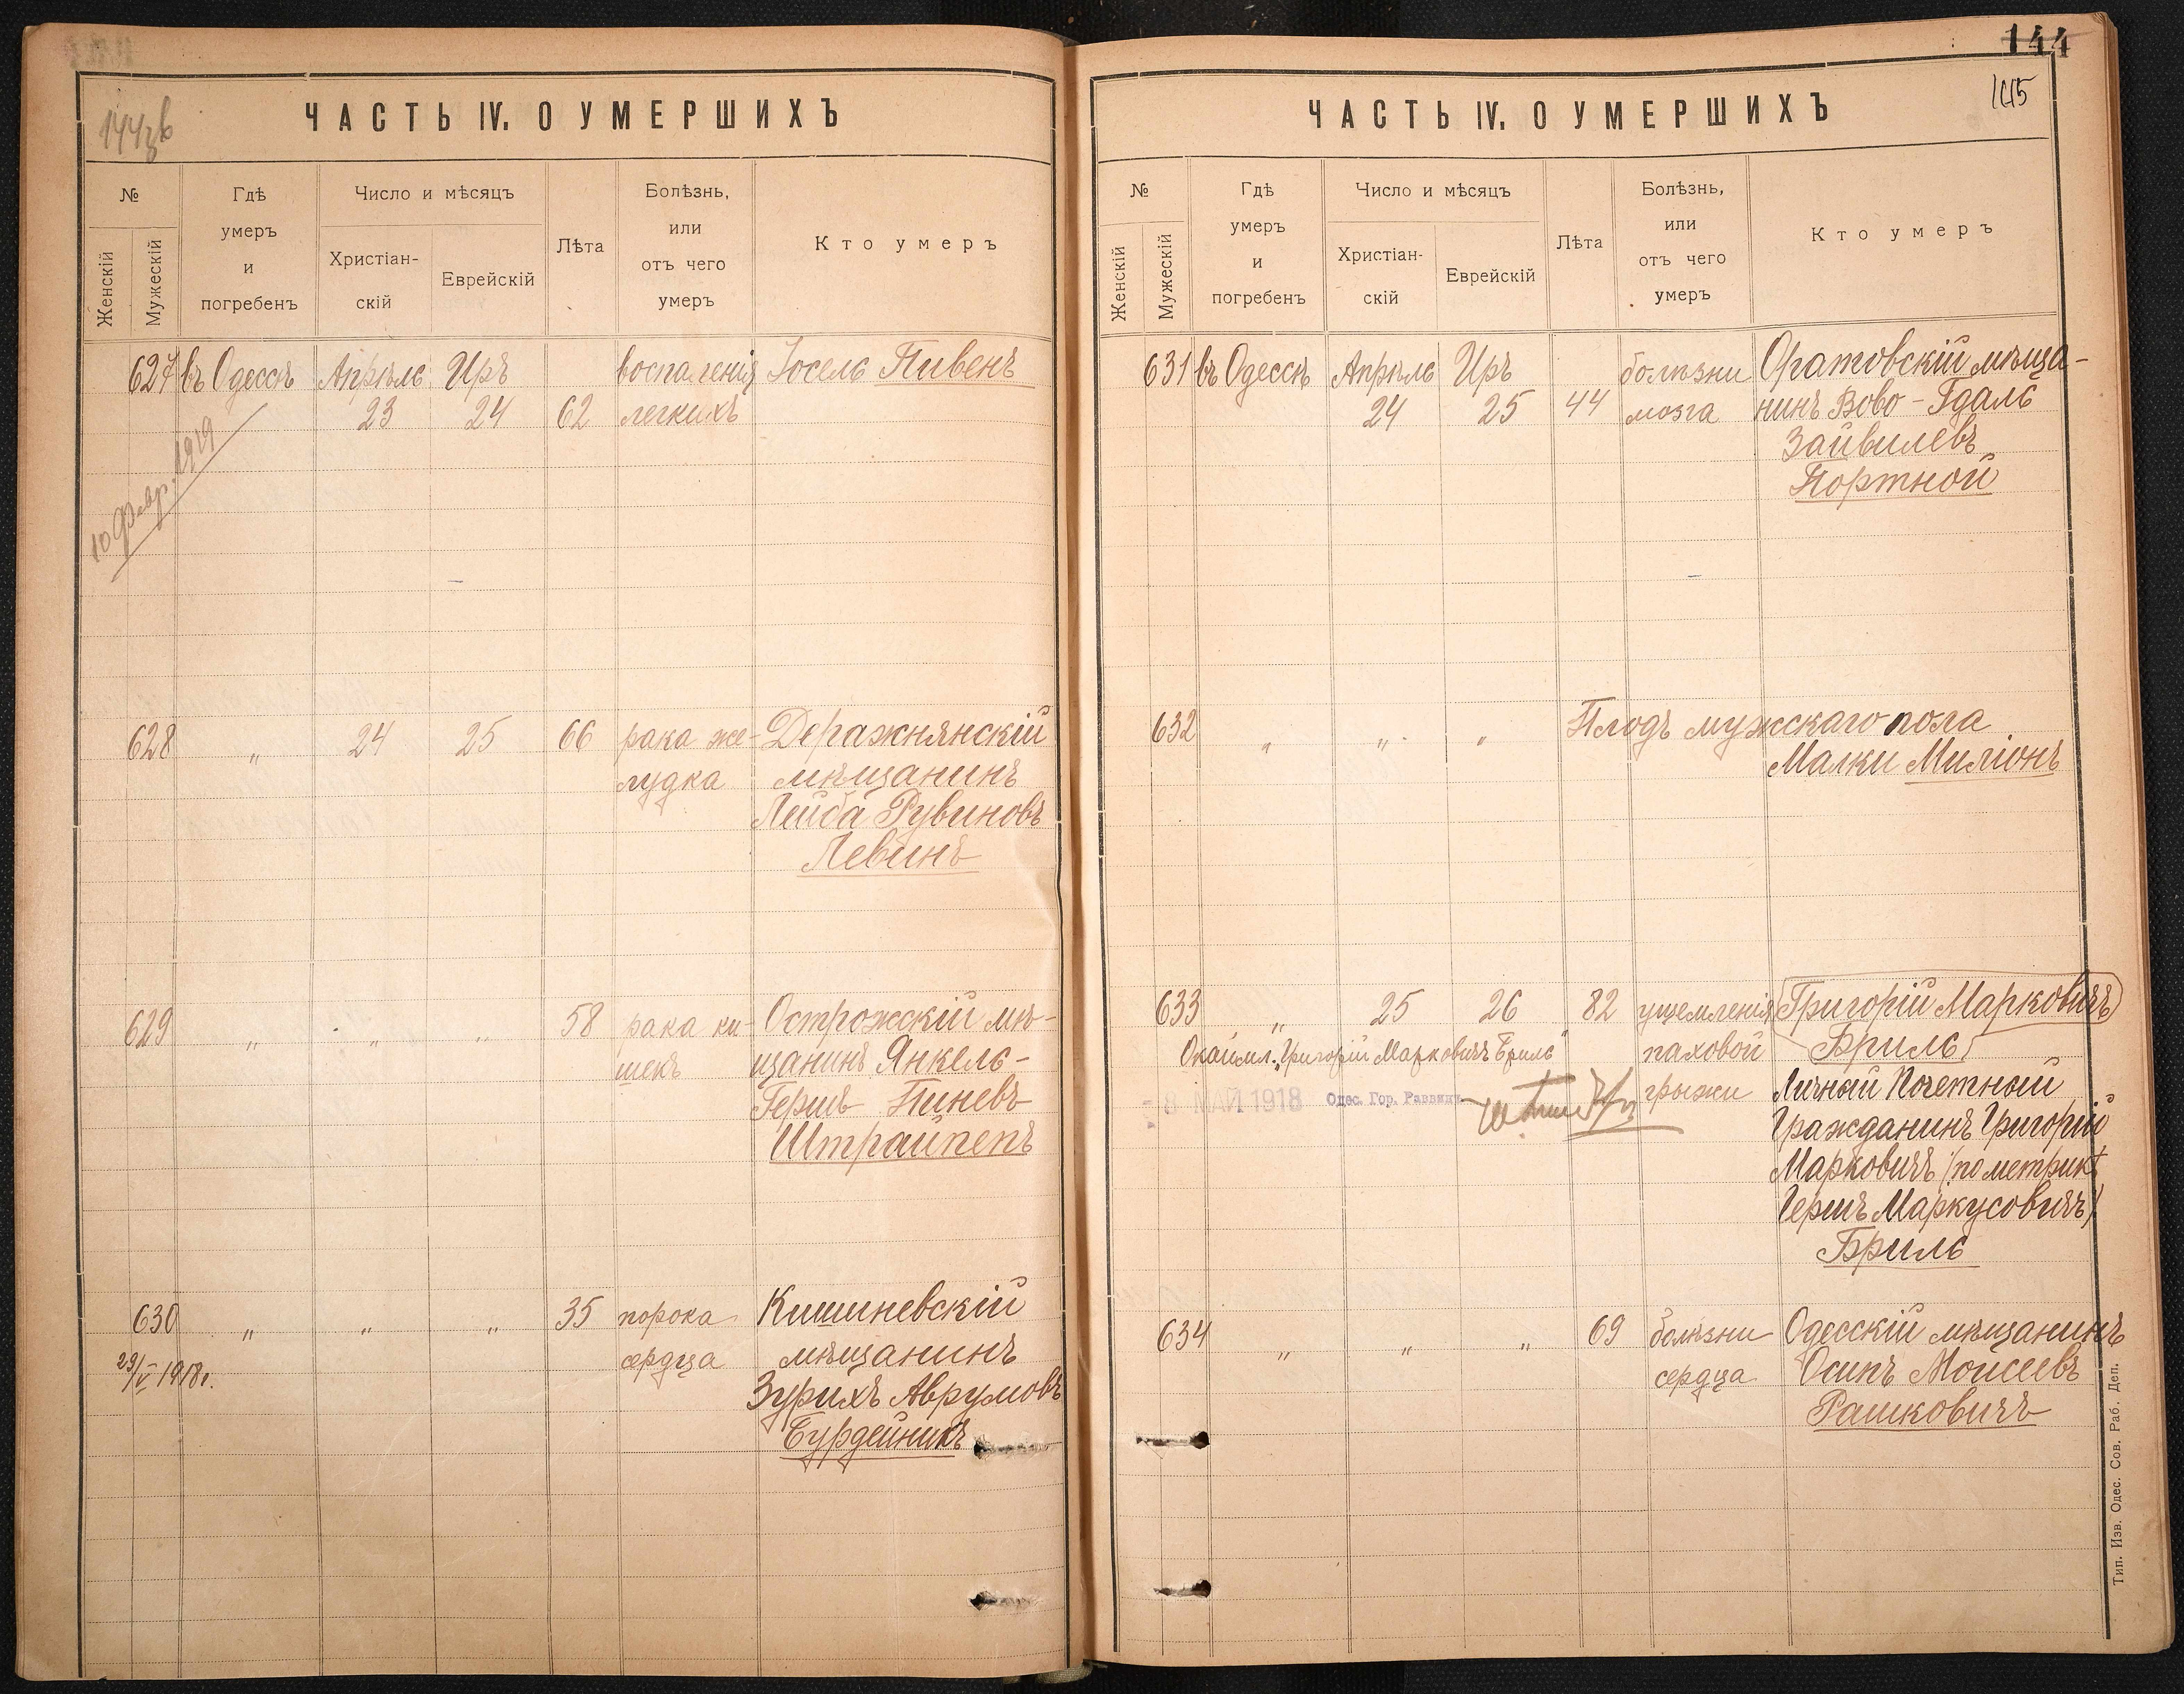 144зв
ЧАСТЬ IV. О УМЕРШИХЪ
№
Женскій
Мужескій
Гдѣ
умеръ
и
погребенъ
Число и мѣсяцъ
Христіан-
скій
Еврейскій
Лѣта
Болѣзнь,
или
отъ чего
умеръ
Кто умеръ
627 въ Одессѣ Апрѣль Иръ воспаленія Іосель Пивень
23 24 62 легкихъ
10 Февр. 1919
628 " 24 25 66 рака же- Деражнянскій
лудка мѣщанинъ
Лейба Рувиновъ
Левинъ
629 " " " 58 рака ки- Острожскій мѣ-
шекъ щанинъ Янкель-
Гершъ Пиневъ
Штрайпепъ
630 " " " 35 порока Кишиневскій
29/V 1918г. сердца мѣщанинъ
Зурихъ Аврумовъ
Бурдейникъ
144
145
ЧАСТЬ IV. О УМЕРШИХЪ
№
Женскій
Мужескій
Гдѣ
умеръ
и
погребенъ
Число и мѣсяцъ
Христіан-
скій
Еврейскій
Лѣта
Болѣзнь,
или
отъ чего
умеръ
Кто умеръ
631 въ Одессѣ Апрѣль Иръ болѣзни Оратовскій мѣща-
24 25 44 мозга нинъ Вово-Гдаль
Зайвилевъ
Портной
632 " " " Плодъ мужскаго пола
Малки Миліонъ
633 " 25 26 82 ущемленія Григорій Марковичъ
Окаймл. "Григорій Марковичъ Бриль" паховой Бриль
- 8 МАЙ 1918 Одес. Гор. Раввинъ грыжи Личный Почетный
Гражданинъ Григорій
Марковичъ (по метрикѣ
Гершъ Маркусовичъ)
Бриль
634 " " " 69 болѣзни Одесскій мѣщанинъ
сердца Осипъ Моисеевъ
Рашковичъ
Тип. Изв. Одес. Сов. Раб. Деп.